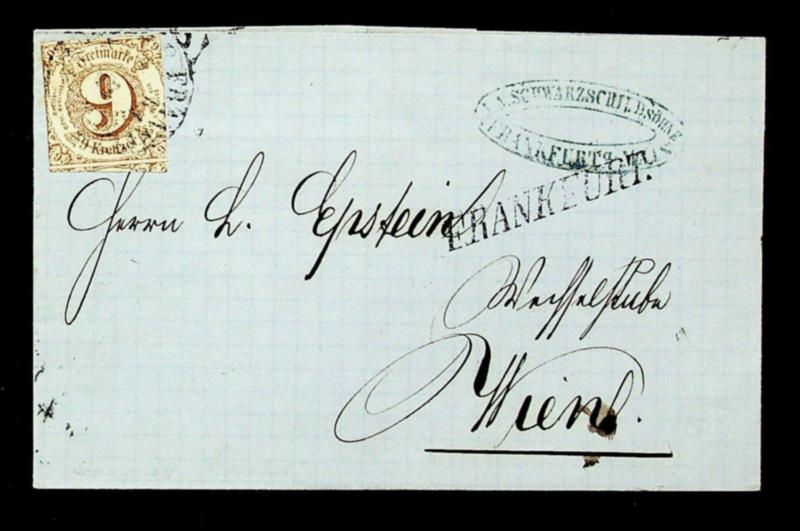 Freimarke
9
9 Kreuzer
J. A. SCHWARZSCHILD SÖHNE
FRANKFURT a. MAIN
FRANKFURT.
Herrn L. Epstein
Wechselstube
Wien.